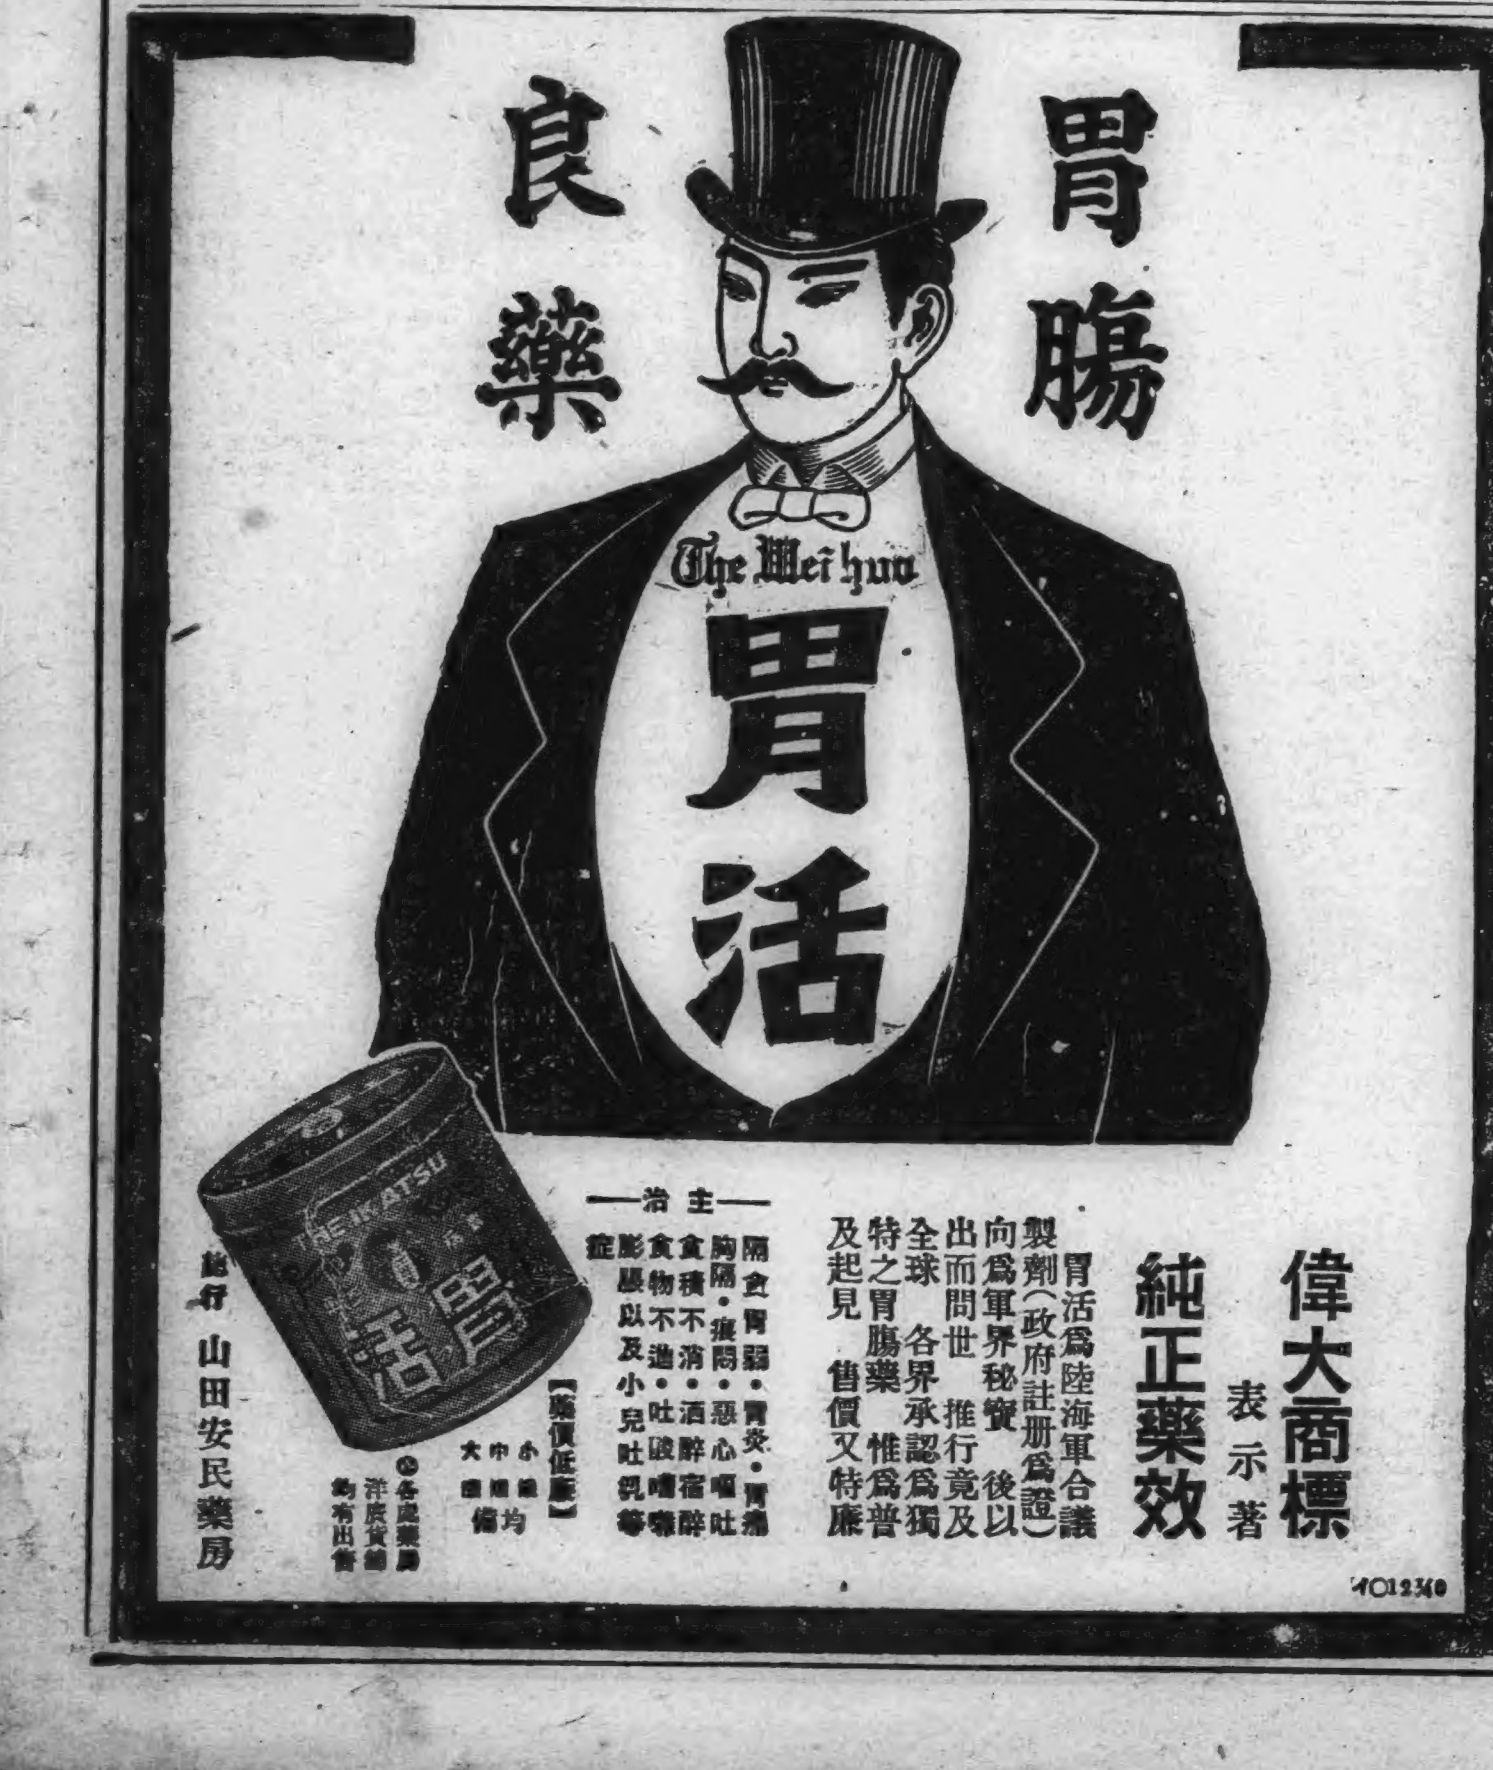 胃腸
良藥
The Weihuo
胃活
偉大商標
表示著
純正藥效
胃活爲陸海軍合議
製劑（政府註册爲證）
向爲軍界秘寶　後以
出而問世　推行竟及
全球　各界承認爲獨
特之胃腸藥　惟爲普
及起見　售價又特廉
主治
隔食胃弱・胃炎・胃痛
胸隔・痕悶・惡心嘔吐
食積不消・酒醉宿醉
食物不進・吐酸嘈囃
膨脹以及小兒吐乳等
症
【藥價低廉】
小
中
大
均備
各處藥房
洋廣貨鋪
均有出售
山田安民藥房
THE IKATSU
胃活